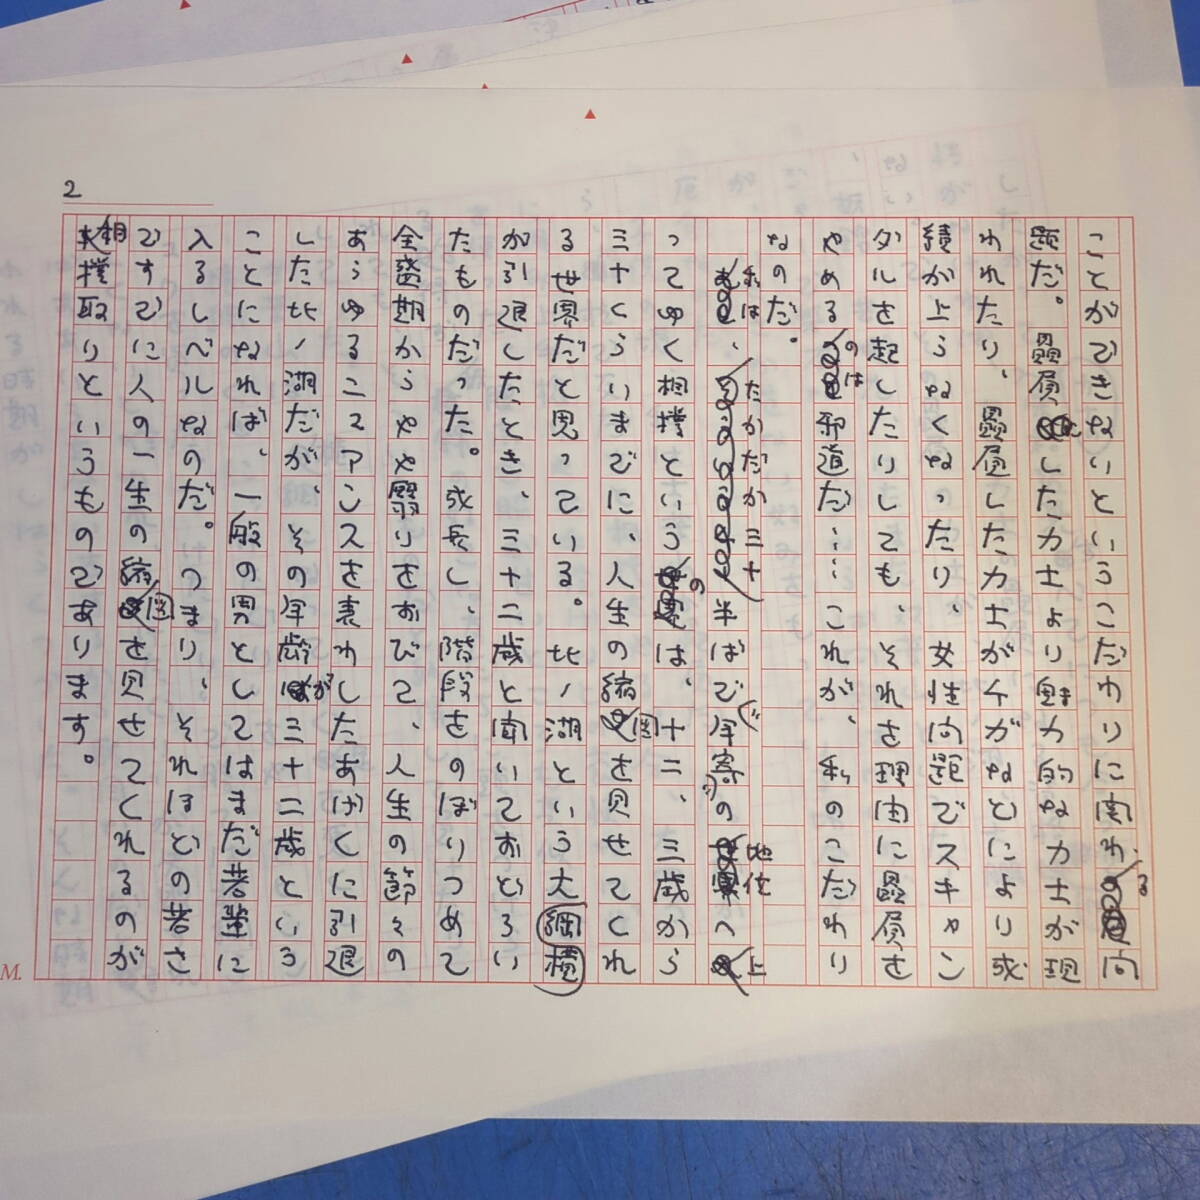 2
ことができないというこだわりに関わる問
題だ。贔屓した力士より魅力的な力士が現
われたり、贔屓した力士がケガなどにより成
績が上らなくなったり、女性問題でスキャン
ダルを起したりしても、それを理由に贔屓を
やめるのは邪道だ……これが、私のこだわり
なのだ。
私は、たかだか三十半ばで年寄の地位へ上
ってゆく相撲というのは、十二、三歳から
三十くらいまでに、人生の縮図を見せてくれ
る世界だと思っている。北ノ湖という大綱横
が引退したとき、三十二歳と聞いておどろい
たものだった。成長し、階段をのぼりつめて
全盛期からやや翳りをおびて、人生の節々の
あらゆるニュアンスを表わしたあげくに引退
した北ノ湖だが、その年齢が三十二歳という
ことになれば、一般の男としてはまだ若輩に
入るレベルなのだ。つまり、それほどの若さ
ですでに人の一生の縮図を見せてくれるのが
相撲取りというものであります。
M.